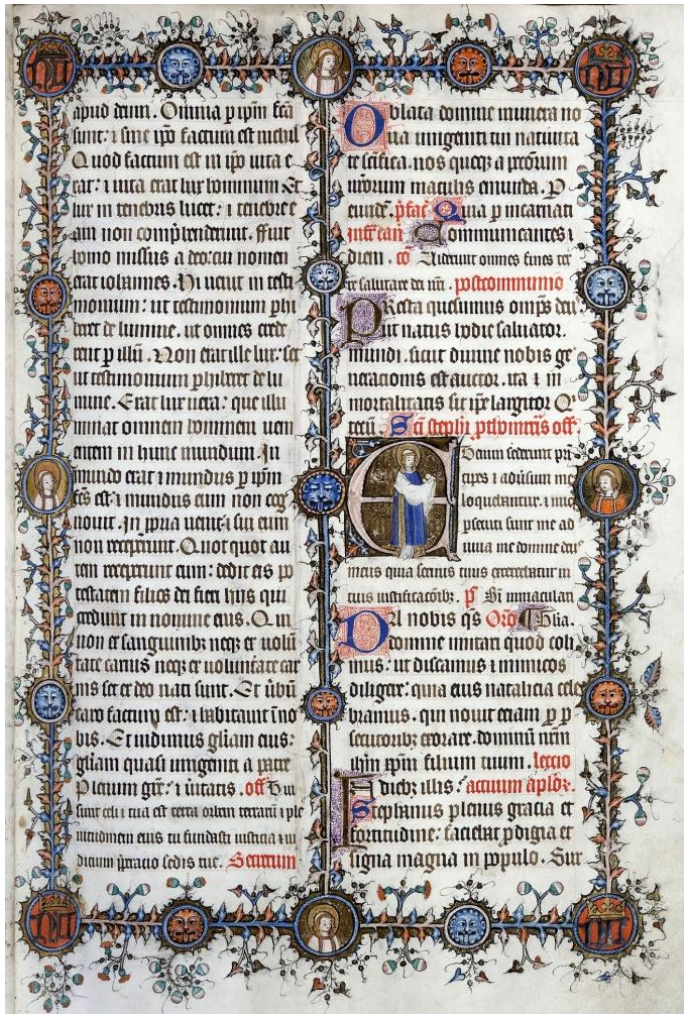 apud deum. Omnia p ipm fca
sunt: i sine ipo factum est nichil
Quod factum est in ipo uita e
rat: i uita erat lux hominum Et
lux in tenebris lucet: i tenebre e
am non comprehenderunt. ffuit
homo missus a deo: cui nomen
erat iohannes. Hi uenit in testi
monium: ut testimonium phi
beret de lumine. ut omnes crede
rent p illu. Non erat ille lux: set
ut testimonium phiberet de lu
mine. Erat lux uera: que illu
minat omnem hominem ueni
entem in hunc mundum. In
mundo erat i mundus p ipm
fcs est: i mundus eum non cog
nouit. In ppria uenit: i sui eum
non receperunt. Quot quot au
tem receperunt eum: dedit eis po
testatem filios dei fieri hijs qui
credunt in nomine eius. Qui
non ex sanguinibz neqz ex uolu
tate carnis neqz ex uoluntate uir
set ex deo nati sunt. Et ubu
caro factum est: i habitauit i no
bis. Et uidimus gliam eius:
gliam quasi unigeniti a patre
Plenum gre: i uitatis. off Tui
sunt celi i tua est terra orbem terrarum i ple
nitudinem eius tu fundasti iusticia i iu
dicium pparacio sedis tue. Secretum
Oblata domine munera no
ua unigeniti tui natiuita
te scifica. nos queqz a pccorum
nrorum maculis emunda. P
eund. pfac Quia p incarnati
infra can Communicantes i
diem. co Viderunt omnes fines ter
re salutare dei nri. postcommunio
Presta quesumus omps deus
ut natus hodie saluator
mundi. sicut diuine nobis ge
neracionis est auctor. ita i in
mortalitatis sit ipe largitor Q
tecu. Sci stephi pthomris off.
Etenim sederunt pri
cipes i aduersum me
loquebantur. i iniq
psecuti sunt me ad
iuua me domine deus
meus quia seruus tuus exercebatur in
tuis iustificacoibz. ps Bti immaculati
Da nobis qs Oro Glia.
domine imitari quod coli
mus: ut discamus i inimicos
diligere: quia eius natalicia cele
bramus. qui nouit eciam p p
secutoribz exorare. dominum nrm
ihm xpm filium tuum. leccio
In diebz illis: actuum aplorz.
Stephanus plenus gracia et
fortitudine: faciebat pdigia et
signa magna in populo. Sur